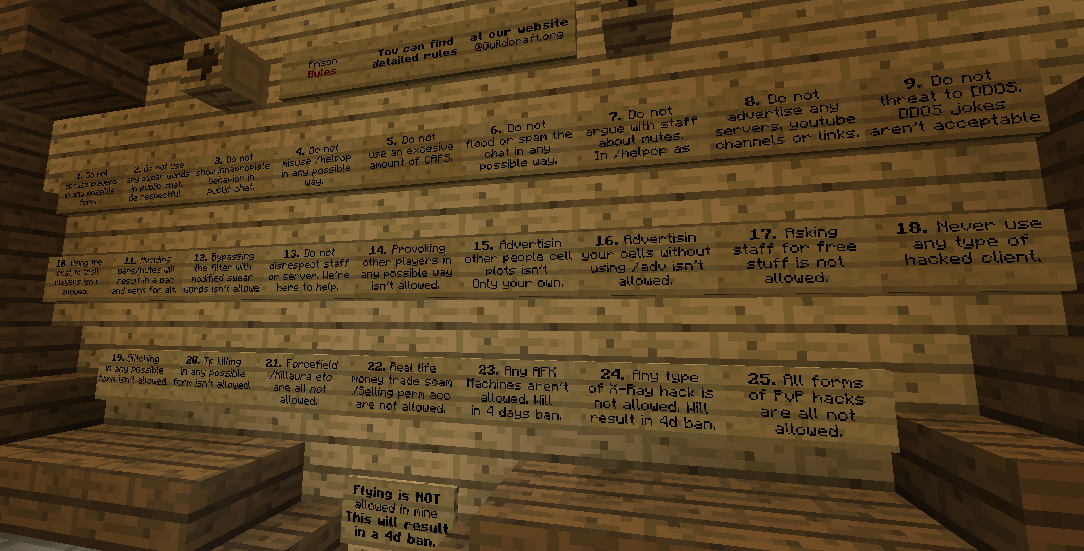 Prison
Rules
You can find
detailed rules
at our website
@Guildcraft.org
1. Do not
accuse players
in any possible
form.
2. Do not use
any swear words
in public chat.
Be respectful.
3. Do not
show innapropiate
behavior in
public chat.
4. Do not
misuse /helpop
in any possible
way.
5. Do not
use an excesive
amount of CAPS.
6. Do not
flood or spam the
chat in any
possible way.
7. Do not
argue with staff
about mutes.
In /helpop as
8. Do not
advertise any
servers, youtube
channels or links.
9. Do not
threat to DDOS.
DDOS jokes
aren't acceptable
10. Using the
chat to troll
players isn't
allowed.
11. Evading
bans/mutes will
result in a ban
and perm for alt.
12. Bypassing
the filter with
modified swear
words isn't allowe
13. Do not
disrespect staff
or server. We're
here to help.
14. Provoking
other players in
any possible way
isn't allowed.
15. Advertisin
other people cell
plots isn't
Only your own.
16. Advertisin
your cells without
using /adv isn't
allowed.
17. Asking
staff for free
stuff is not
allowed.
18. Never use
any type of
hacked client.
19. Glitching
in any possible
form isn't allowed.
20. Tp killing
in any possible
form isn't allowed.
21. Forcefield
/Killaura etc
are all not
allowed.
22. Real life
money trade scam
/Selling perm acc
are not allowed.
23. Any AFK
Machines aren't
allowed. Will
in 4 days ban.
24. Any type
of X-Ray hack is
not allowed. Will
result in 4d ban.
25. All forms
of PvP hacks
are all not
allowed.
Flying is NOT
allowed in mine
This will result
in a 4d ban.